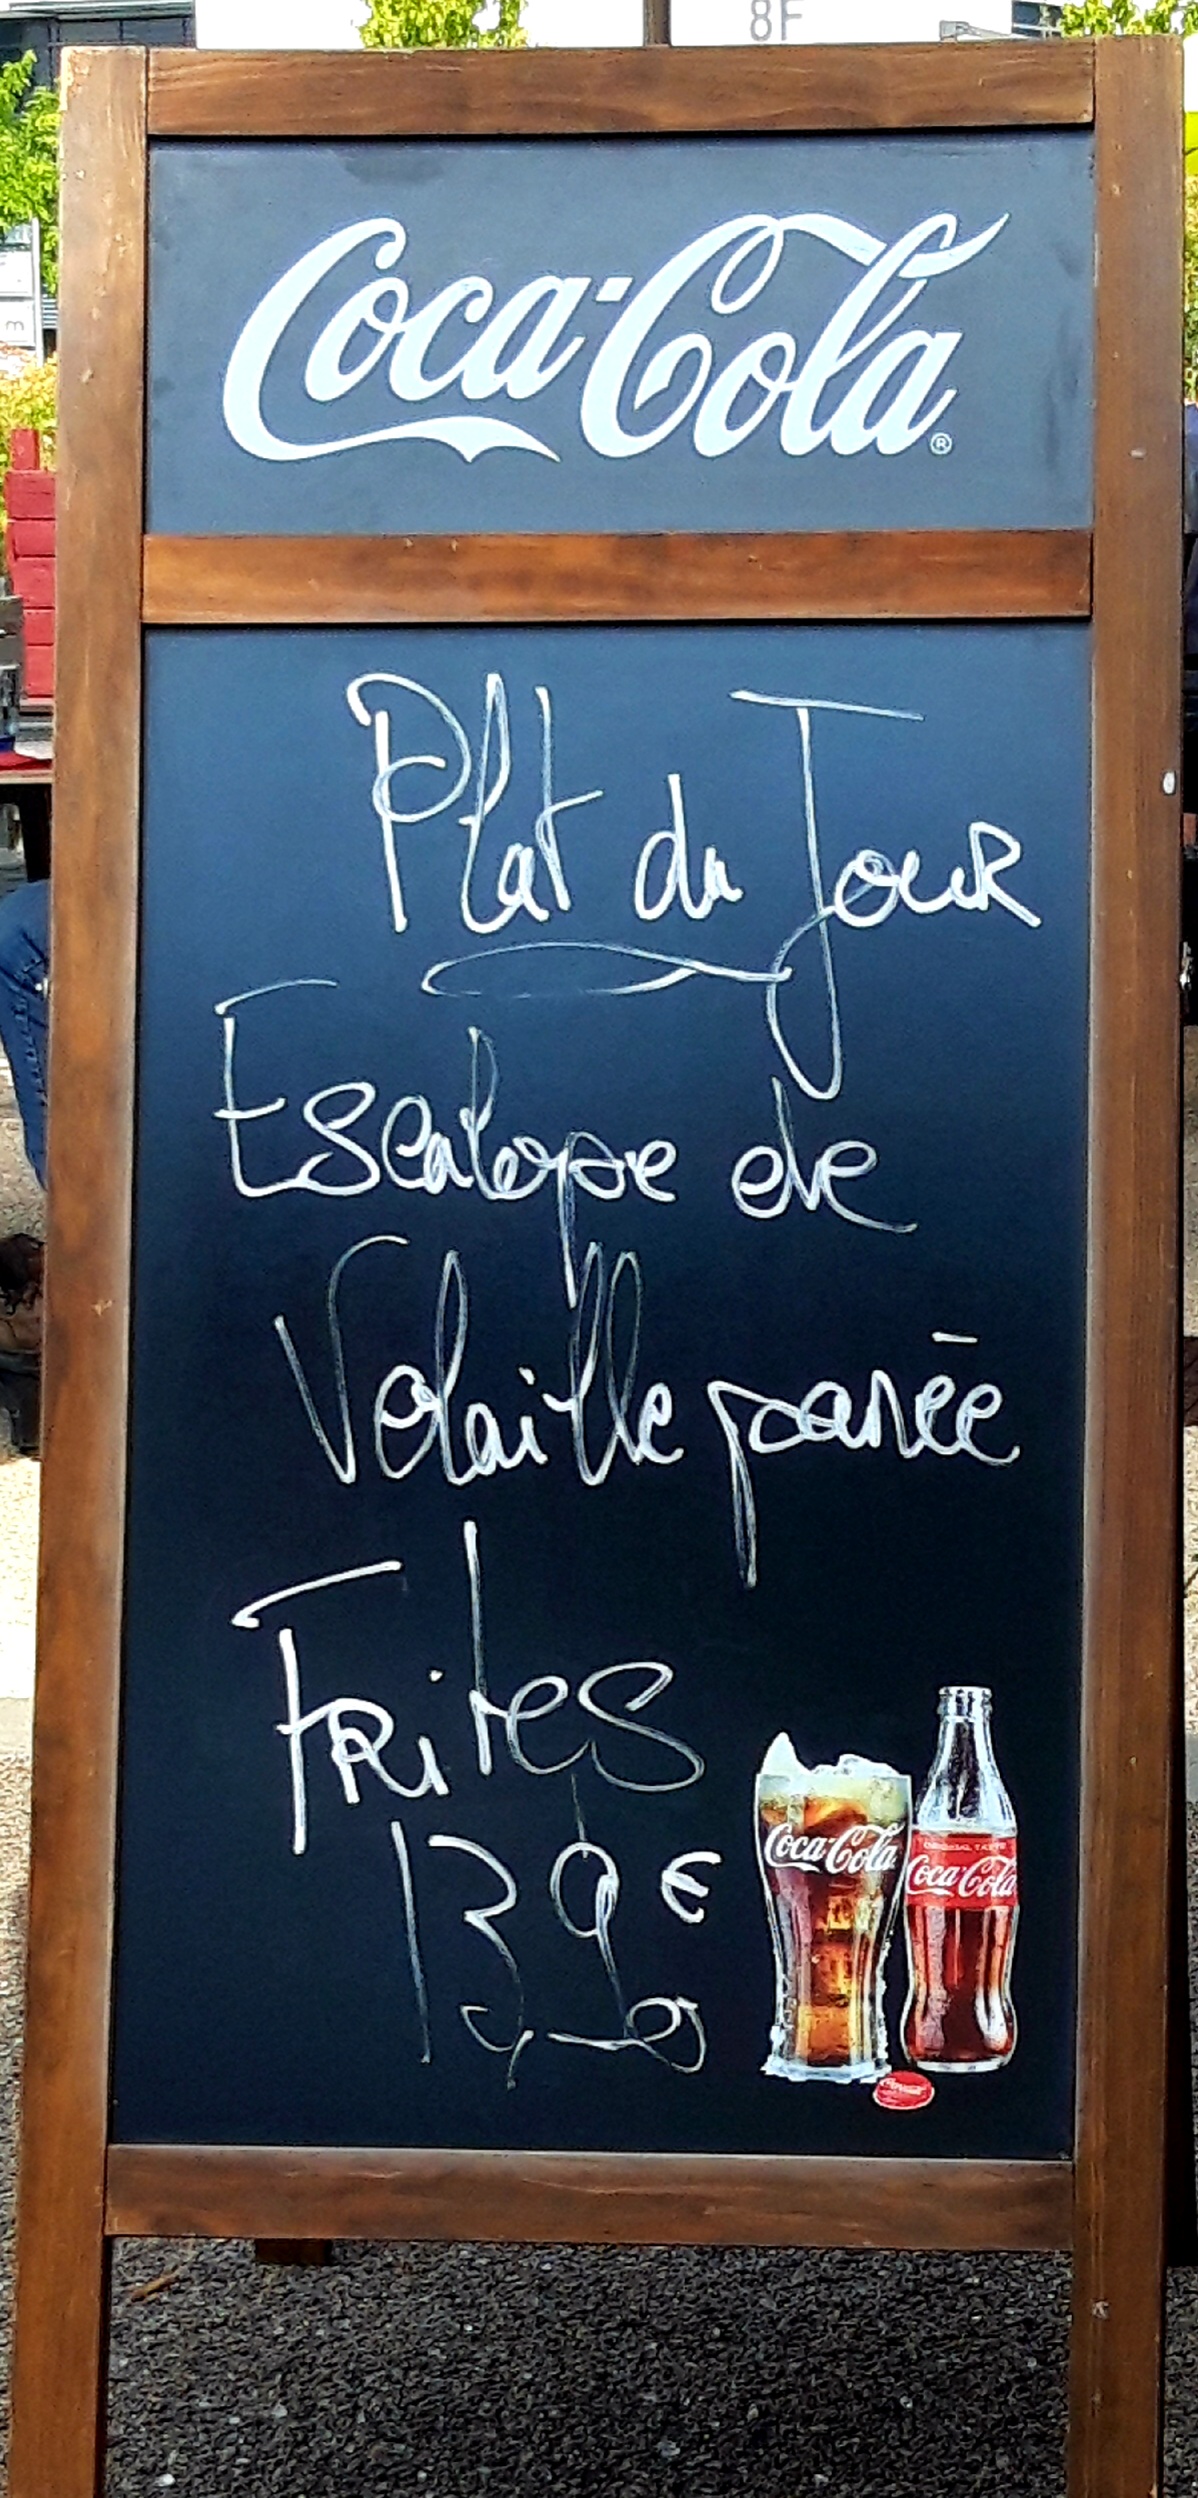 8F
m
Coca-Cola®
Plat du Jour
Escalope de
Volaille panée
Frites
13,90 €
Coca-Cola
ORIGINAL TASTE
Coca-Cola